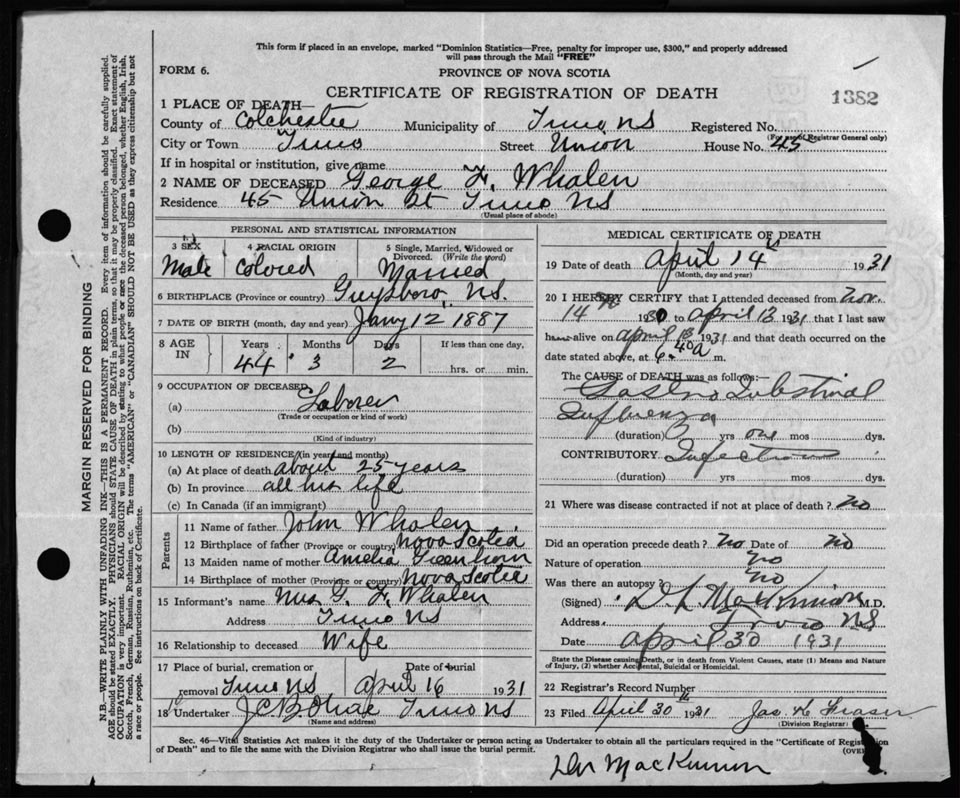 This form if placed in an envelope, marked "Dominion Statistics—Free, penalty for improper use, $300," and properly addressed
will pass through the Mail "FREE"
FORM 6.
PROVINCE OF NOVA SCOTIA
CERTIFICATE OF REGISTRATION OF DEATH
1382
1 PLACE OF DEATH—
County of Colchester Municipality of Truro NS Registered No.
(For use of Registrar General only)
City or Town Truro Street Union House No. 45
If in hospital or institution, give name
2 NAME OF DECEASED George F. Whalen
Residence 45 Union St Truro NS
(Usual place of abode)
PERSONAL AND STATISTICAL INFORMATION
3 SEX 4 RACIAL ORIGIN 5 Single, Married, Widowed or
Divorced. (Write the word)
Male Colored Married
6 BIRTHPLACE (Province or country) Guysboro, NS.
7 DATE OF BIRTH (month, day and year) Jany 12 1887
8 AGE IN Years Months Days If less than one day,
44 3 2 hrs. or min.
9 OCCUPATION OF DECEASED
(a) Laborer
(Trade or occupation or kind of work)
(b)
(Kind of industry)
10 LENGTH OF RESIDENCE (in years and months)
(a) At place of death about 25 years
(b) In province all his life
(c) In Canada (if an immigrant)
Parents
11 Name of father John Whalen
12 Birthplace of father (Province or country) Nova Scotia
13 Maiden name of mother Amelia
14 Birthplace of mother (Province or country) Nova Scotia
15 Informant's name Mrs G. F. Whalen
Address Truro NS
16 Relationship to deceased Wife
17 Place of burial, cremation or Date of burial
removal Truro NS April 16 1931
18 Undertaker Truro NS
(Name and address)
MEDICAL CERTIFICATE OF DEATH
19 Date of death April 14 1931
(Month, day and year)
20 I HEREBY CERTIFY that I attended deceased from Nov.
14 1930 to April 13 1931 that I last saw
h alive on April 13 1931 and that death occurred on the
date stated above, at 6.40 a m.
The CAUSE of DEATH was as follows:—
Gastro Intestinal
Influenza
(duration) yrs one mos dys.
CONTRIBUTORY Infection
(duration) yrs mos dys.
21 Where was disease contracted if not at place of death? No
Did an operation precede death? No Date of No
Nature of operation No
Was there an autopsy? No
(Signed) D L MacKinnon M.D.
Address Truro NS
Date April 30 1931
State the Disease causing Death, or in death from Violent Causes, state (1) Means and Nature
of Injury, (2) whether Accidental, Suicidal or Homicidal.
22 Registrar's Record Number
23 Filed April 30 1931 Jas H Fraser
(Division Registrar)
Sec. 46—Vital Statistics Act makes it the duty of the Undertaker or person acting as Undertaker to obtain all the particulars required in the "Certificate of Registration
of Death" and to file the same with the Division Registrar who shall issue the burial permit. (OVER)
Dr MacKinnon
MARGIN RESERVED FOR BINDING
N.B.—WRITE PLAINLY WITH UNFADING INK—THIS IS A PERMANENT RECORD. Every item of information should be carefully supplied.
AGE should be stated EXACTLY. PHYSICIANS should STATE CAUSE OF DEATH in plain terms, so that it may be properly classified. Exact statement of
OCCUPATION is very important. RACIAL ORIGIN will be described by stating to what people or race the deceased person belonged, whether English, Irish,
Scotch, French, German, Russian, Ruthenian, etc. The terms "AMERICAN" or "CANADIAN" SHOULD NOT BE USED as they express citizenship but not
a race or people. See instructions on back of Certificate.